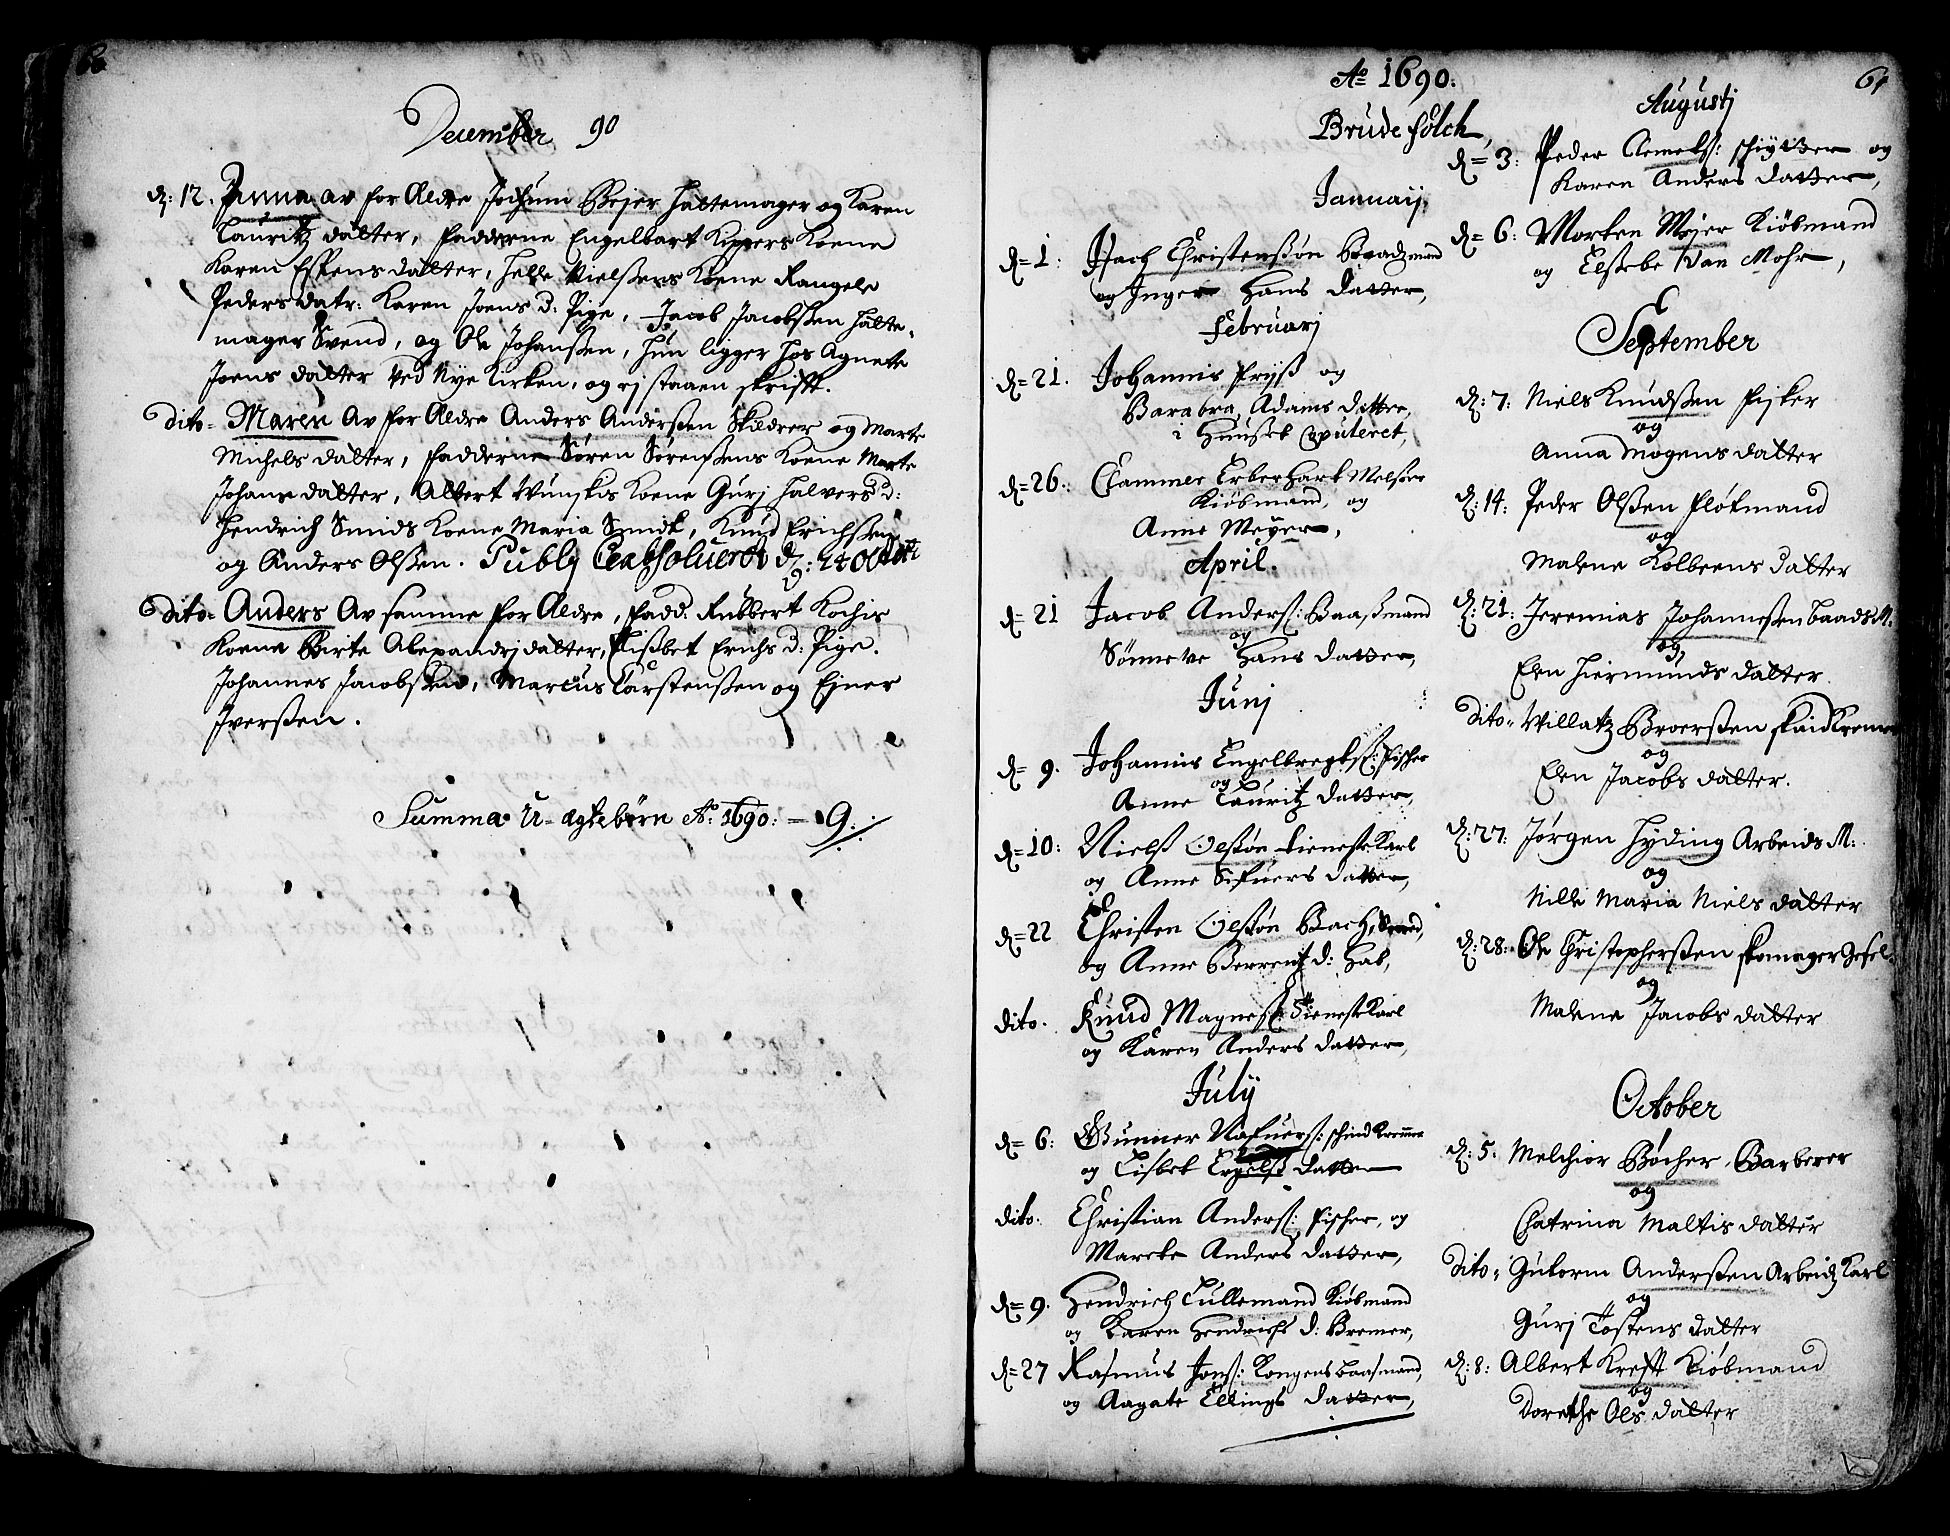 December 90
d: 12. Anna av for Ældre Jochum Bejer Hattemager og Karen
Lauritz datter, fadderne Engelbart Kippers Koene
Karen Espens datter, Helle Nielssens Koene Rangele
Peders datr: Karen Joens D: Pige, Jacob Jacobssen Hatte-
mager Svend, og Ole Johanssen, hun ligger hos Agnette
Joens datter ved Nye Kirken, og ej staaen skrifft.
dito- Maren Av for Ældre Anders Anderssen Skildrer og Marte
Michels datter, fadderne Søren Sørenssens Koene Marte
Johans datter, Albert Wunskis Koene Gurj Halvers D:
Hendrich Smids Koene Maria Smidt, Knud Erichssen
og Anders Olssen. Publ absolveret d: 24 Octobr
dito- Anders Av samme for Ældre, fadd: Rubbert Kochis
Koene Birte Alexandri datter, Lissbet Erichs D: Pige.
Johannes Jacobssen, Marcus Carstenssen og Ejner
Iverssen.
Summa U-ægte børn Ao: 1690: — 9.
Ao 1690:
Brude folch
Januarij
d= 1: Isach Christenssøn Baadzmand
og Inger Hans datter,
Februarj
d= 21. Johannis Pryss og
Barabra Adams dattr,
i Huuset Copuleret,
d= 26: Clammer Erberhart Melsøn
Kiøbmand, og
Anne Meyer,
April.
d= 21 Jacob Anders: Baassmand
og
Sønneve Hans datter,
Junj
d= 9. Johannis Engelbregts: Fischer
og
Anne Lauritz datter,
d= 10: Nielss Olssøn tieneste Karl
og Anne Sifuers datter,
d= 22 Christen Olssøn Bach, Svend,
og Anne Berrent d: Hab,
dito. Knud Magness: Tieneste Karl
og Karen Anders datter,
July
d= 6: Gunner Nafuers: schind Kremer
og Lisbet datter
dito. Christian Anders: Fischer, og
Marete Anders datter,
d= 9. Hendrich Tullemand Kiøbmand
og Karen Hendrichs d: Bremer,
d= 27 Rasmus Jons: Kongens Baasmand,
og Aagate Ellings datter,
61
Augustj
d= 3: Peder Clemets: schiytter og
Karen Anders datter,
d= 6: Morten Mejer Kiøbmand
og Elssebe Van Mohr,
September
d: 7: Niels Knudssen Fisker
og
Anna Mogens datter
d: 14: Peder Olssen fløtmand
og
Malene Kolbeens datter
d: 21: Jeremias Johannessen baads M.
og
Elen Hiermunds datter.
dito- Willatz Broerssen skindkremer
og
Elen Jacobs datter.
d: 27: Jørgen Hyding Arbeids M:
og
Nille Maria Niels datter
d: 28: Ole Christopherssen skomager gesel.
og
Malene Jacobs datter
October
d: 5: Melchior Bøcher, Barberer
og
Chatrina Maltis datter
dito- Gutorm Anderssen Arbeidz Karl
og
Gurj Tostens datter
d: 8: Albert Krefft Kiøbmand
og
Dorethe Ols datter